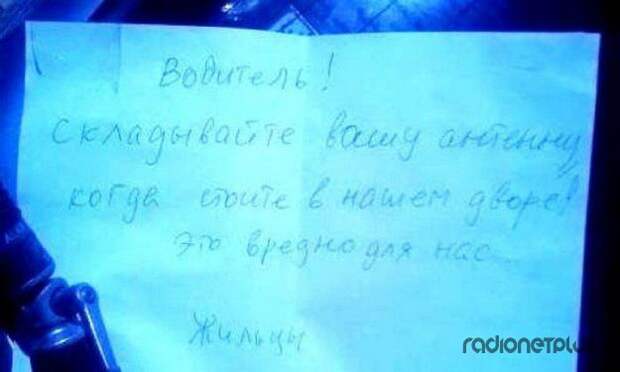 Водитель!
Складывайте вашу антенну
когда стоите в нашем дворе!
Это вредно для нас...
Жильцы
radionetplus